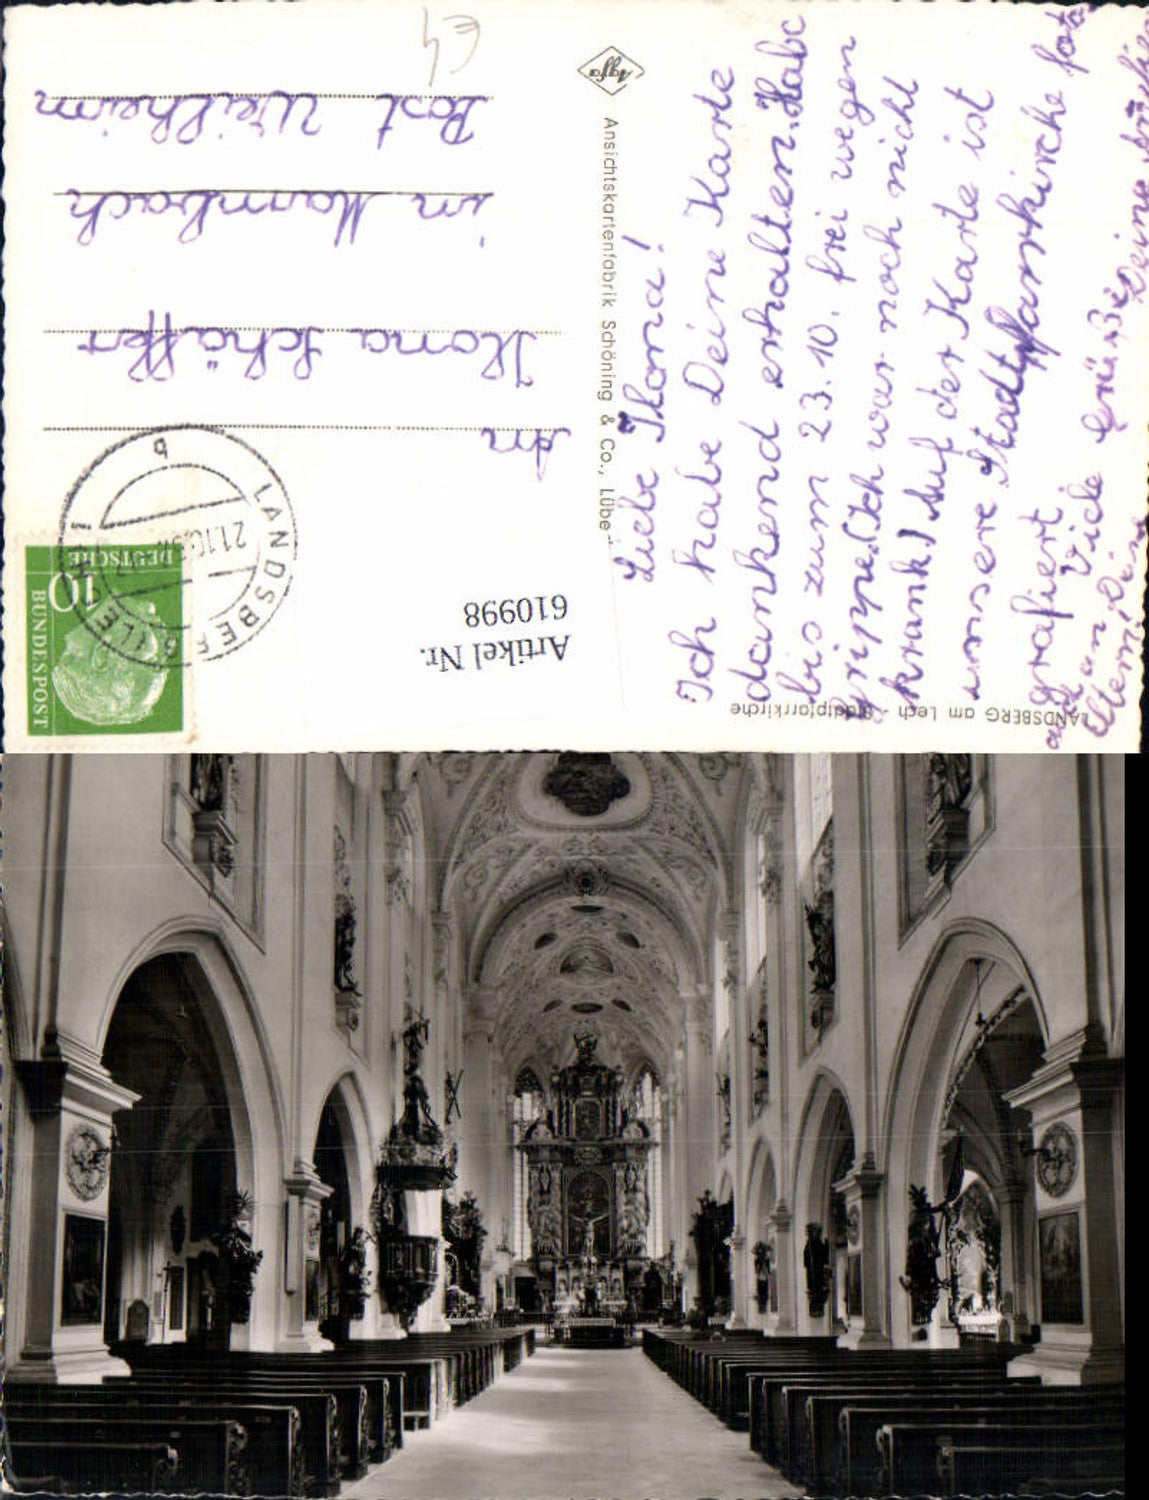 Liebe Ilona!
Ich habe Deine Karte
dankend erhalten. Habe
bis zum 23.10. frei wegen
Grippe. (Ich war noch nicht
krank.) Auf der Karte ist
unsere Stadtpfarrkirche foto
grafiert.
Viele Grüße
auch an Deine
Eltern, Deine
LANDSBERG am Lech - Stadtpfarrkirche
Agfa
Ansichtskartenfabrik Schöning & Co., Lübe
An
Ilona Schäffer
in
Post Weilheim
DEUTSCHE
BUNDESPOST
10
LANDSBERG
21.10.
b
Artikel Nr.
610998
€4